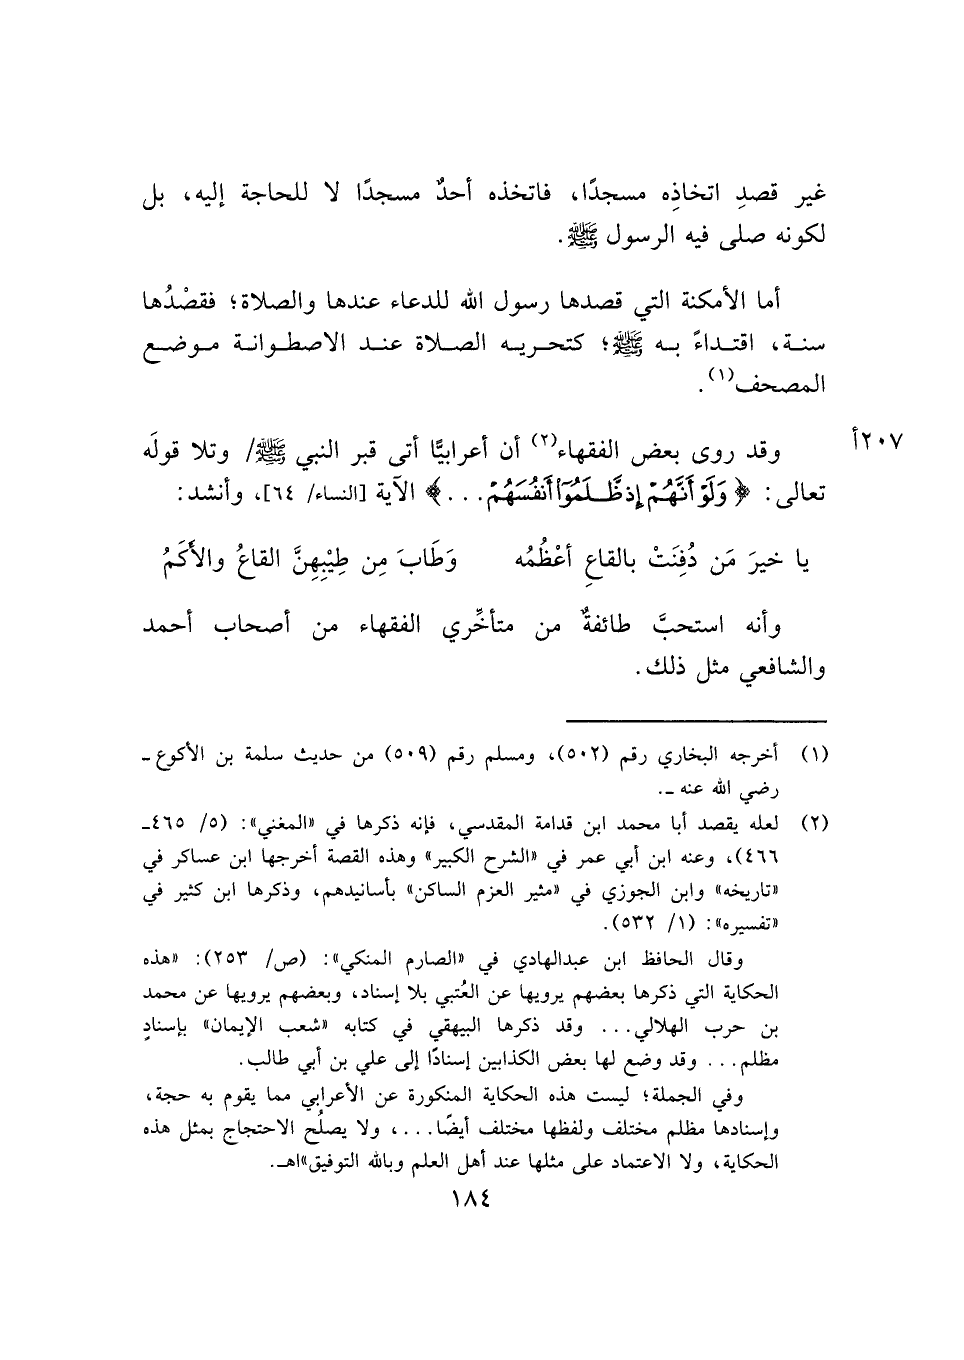 غير قصدِ اتخاذِه مسجدًا، فاتخذه أحدٌ مسجدًا لا للحاجة إليه، بل
لكونه صلى فيه الرسول ﷺ.
أما الأمكنة التي قصدها رسول الله للدعاء عندها والصلاة؛ فقصْدُها
سنـة، اقتـداءً بـه ﷺ؛ كتحريـه الصـلاة عنـد الاصطـوانـة مـوضـع
المصحف(١).
وقد روى بعض الفقهاء(٢) أن أعرابيًّا أتى قبر النبي ﷺ/ وتلا قولَه
٢٠٧أ
تعالى: ﴿وَلَوْ أَنَّهُمْ إِذ ظَّلَمُوٓاْ أَنفُسَهُمْ...﴾ الآية [النساء/ ٦٤]، وأنشد:
يا خيرَ مَن دُفِنَتْ بالقاعِ أعْظُمُه وَطَابَ مِن طِيْبِهِنَّ القاعُ والأَكَمُ
وأنه استحبَّ طائفةٌ من متأخِّري الفقهاء من أصحاب أحمد
والشافعي مثل ذلك.
(١) أخرجه البخاري رقم (٥٠٢)، ومسلم رقم (٥٠٩) من حديث سلمة بن الأكوع ـ
رضي الله عنه ـ.
(٢) لعله يقصد أبا محمد ابن قدامة المقدسي، فإنه ذكرها في «المغني»: (٥/ ٤٦٥ـ
٤٦٦)، وعنه ابن أبي عمر في «الشرح الكبير» وهذه القصة أخرجها ابن عساكر في
«تاريخه» وابن الجوزي في «مثير العزم الساكن» بأسانيدهم، وذكرها ابن كثير في
«تفسيره»: (١/ ٥٣٢).
وقال الحافظ ابن عبدالهادي في «الصارم المنكي»: (ص/ ٢٥٣): «هذه
الحكاية التي ذكرها بعضهم يرويها عن العُتبي بلا إسناد، وبعضهم يرويها عن محمد
بن حرب الهلالي... وقد ذكرها البيهقي في كتابه «شعب الإيمان» بإسنادٍ
مظلم... وقد وضع لها بعض الكذابين إسنادًا إلى علي بن أبي طالب.
وفي الجملة؛ ليست هذه الحكاية المنكورة عن الأعرابي مما يقوم به حجة،
وإسنادها مظلم مختلف ولفظها مختلف أيضًا...، ولا يصلُح الاحتجاج بمثل هذه
الحكاية، ولا الاعتماد على مثلها عند أهل العلم وبالله التوفيق»اهـ.
١٨٤